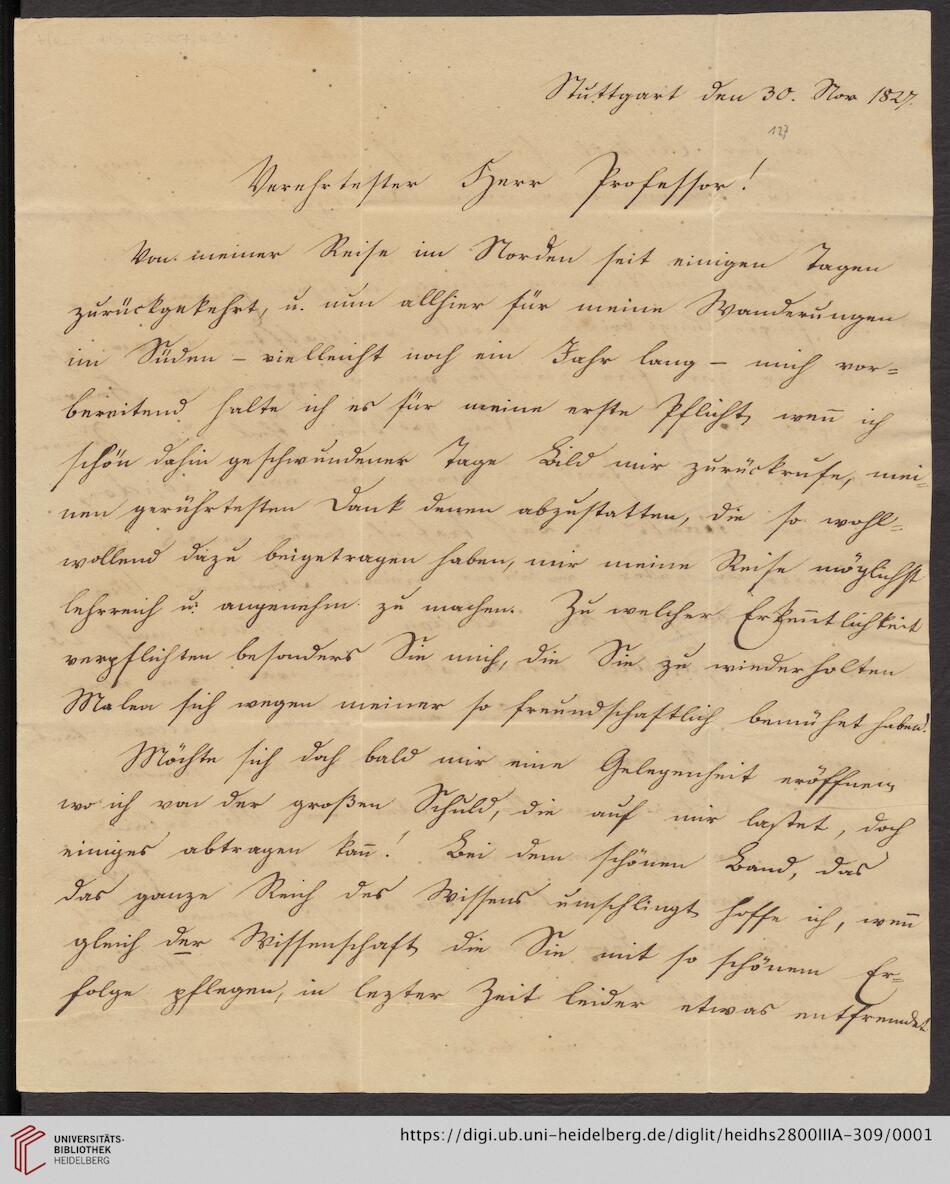 Stuttgart den 30. Nov 1827.
127
Verehrtester Herr Professor!
Von meiner Reise im Norden seit einigen Tagen
zurückgekehrt, u. nun allhier für meine Wanderungen
im Süden – vielleicht noch ein Jahr lang – mich vor=
bereitend halte ich es für meine erste Pflicht, weñ ich
schön dahin geschwundener Tage Bild mir zurückrufe, mei=
nen gerührtesten Dank denen abzustatten, die so wohl=
wollend dazu beigetragen haben, mir meine Reise möglichst
lehrreich u. angenehm zu machen. Zu welcher Erkeñtlichkeit
verpflichten besonders Sie mich, die Sie zu wiederholten
Malen sich wegen meiner so freundschaftlich bemühet haben!
Möchte sich doch bald mir eine Gelegenheit eröffnen,
wo ich von der großen Schuld, die auf mir lastet, doch
einiges abtragen kañ! Bei dem schönen Band, das
das ganze Reich des Wissens umschlingt, hoffe ich, weñ
gleich der Wissenschaft, die Sie mit so schönem Er=
folge pflegen, in lezter Zeit leider etwas entfremdet
UNIVERSITÄTS-
BIBLIOTHEK
HEIDELBERG
https://digi.ub.uni-heidelberg.de/diglit/heidhs2800IIIA-309/0001